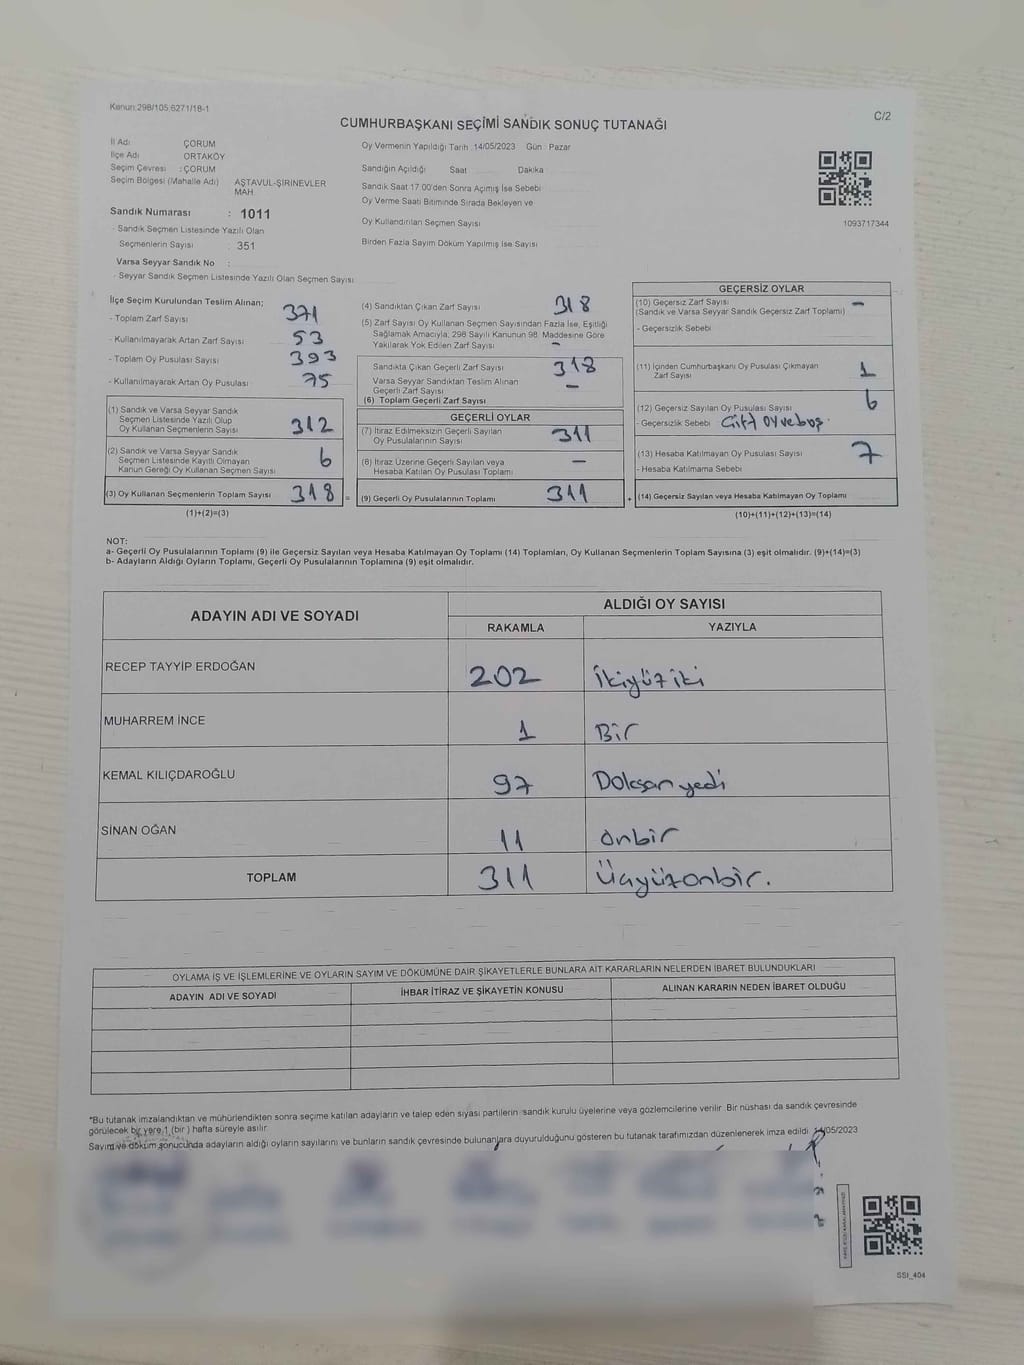 Kanun:298/105 6271/18-1
C/2
CUMHURBAŞKANI SEÇİMİ SANDIK SONUÇ TUTANAĞI
İl Adı : ÇORUM
İlçe Adı : ORTAKÖY
Seçim Çevresi : ÇORUM
Seçim Bölgesi (Mahalle Adı) : AŞTAVUL-ŞİRİNEVLER
MAH.
Sandık Numarası : 1011
- Sandık Seçmen Listesinde Yazılı Olan
Seçmenlerin Sayısı : 351
Varsa Seyyar Sandık No :
- Seyyar Sandık Seçmen Listesinde Yazılı Olan Seçmen Sayısı
Oy Vermenin Yapıldığı Tarih :14/05/2023 Gün : Pazar
Sandığın Açıldığı Saat Dakika
Sandık Saat 17:00'den Sonra Açımış İse Sebebi
Oy Verme Saati Bitiminde Sırada Bekleyen ve
Oy Kullandırılan Seçmen Sayısı
Birden Fazla Sayım Döküm Yapılmış İse Sayısı
1093717344
İlçe Seçim Kurulundan Teslim Alınan;
- Toplam Zarf Sayısı 371
- Kullanılmayarak Artan Zarf Sayısı 53
- Toplam Oy Pusulası Sayısı 393
- Kullanılmayarak Artan Oy Pusulası 75
(1) Sandık ve Varsa Seyyar Sandık
Seçmen Listesinde Yazılı Olup
Oy Kullanan Seçmenlerin Sayısı 312
(2) Sandık ve Varsa Seyyar Sandık
Seçmen Listesinde Kayıtlı Olmayan
Kanun Gereği Oy Kullanan Seçmen Sayısı 6
(3) Oy Kullanan Seçmenlerin Toplam Sayısı 318 =
(1)+(2)=(3)
(4) Sandıktan Çıkan Zarf Sayısı 318
(5) Zarf Sayısı Oy Kullanan Seçmen Sayısından Fazla İse, Eşitliği
Sağlamak Amacıyla, 298 Sayılı Kanunun 98. Maddesine Göre
Yakılarak Yok Edilen Zarf Sayısı -
Sandıkta Çıkan Geçerli Zarf Sayısı 318
Varsa Seyyar Sandıktan Teslim Alınan
Geçerli Zarf Sayısı -
(6) Toplam Geçerli Zarf Sayısı
GEÇERLİ OYLAR
(7) İtiraz Edilmeksizin Geçerli Sayılan
Oy Pusulalarının Sayısı 311
(8) İtiraz Üzerine Geçerli Sayılan veya
Hesaba Katılan Oy Pusulası Toplamı -
(9) Geçerli Oy Pusulalarının Toplamı 311 +
GEÇERSİZ OYLAR
(10) Geçersiz Zarf Sayısı -
(Sandık ve Varsa Seyyar Sandık Geçersiz Zarf Toplamı)
- Geçersizlik Sebebi
(11) İçinden Cumhurbaşkanı Oy Pusulası Çıkmayan
Zarf Sayısı 1
(12) Geçersiz Sayılan Oy Pusulası Sayısı 6
- Geçersizlik Sebebi Çift oy ve boş.
(13) Hesaba Katılmayan Oy Pusulası Sayısı 7
- Hesaba Katılmama Sebebi
(14) Geçersiz Sayılan veya Hesaba Katılmayan Oy Toplamı
(10)+(11)+(12)+(13)=(14)
NOT:
a- Geçerli Oy Pusulalarının Toplamı (9) ile Geçersiz Sayılan veya Hesaba Katılmayan Oy Toplamı (14) Toplamları, Oy Kullanan Seçmenlerin Toplam Sayısına (3) eşit olmalıdır. (9)+(14)=(3)
b- Adayların Aldığı Oyların Toplamı, Geçerli Oy Pusulalarının Toplamına (9) eşit olmalıdır.
ADAYIN ADI VE SOYADI ALDIĞI OY SAYISI
RAKAMLA YAZIYLA
RECEP TAYYİP ERDOĞAN 202 İkiyüz iki
MUHARREM İNCE 1 Bir
KEMAL KILIÇDAROĞLU 97 Doksan yedi
SİNAN OĞAN 11 Onbir
TOPLAM 311 Üçyüzonbir.
OYLAMA İŞ VE İŞLEMLERİNE VE OYLARIN SAYIM VE DÖKÜMÜNE DAİR ŞİKAYETLERLE BUNLARA AİT KARARLARIN NELERDEN İBARET BULUNDUKLARI
ADAYIN ADI VE SOYADI İHBAR İTİRAZ VE ŞİKAYETİN KONUSU ALINAN KARARIN NEDEN İBARET OLDUĞU
*Bu tutanak imzalandıktan ve mühürlendikten sonra seçime katılan adayların ve talep eden siyasi partilerin sandık kurulu üyelerine veya gözlemcilerine verilir. Bir nüshası da sandık çevresinde
görülecek bir yere 1 (bir) hafta süreyle asılır.
Sayım ve döküm sonucunda adayların aldığı oyların sayılarını ve bunların sandık çevresinde bulunanlara duyurulduğunu gösteren bu tutanak tarafımızdan düzenlenerek imza edildi. 14/05/2023
SSI_404